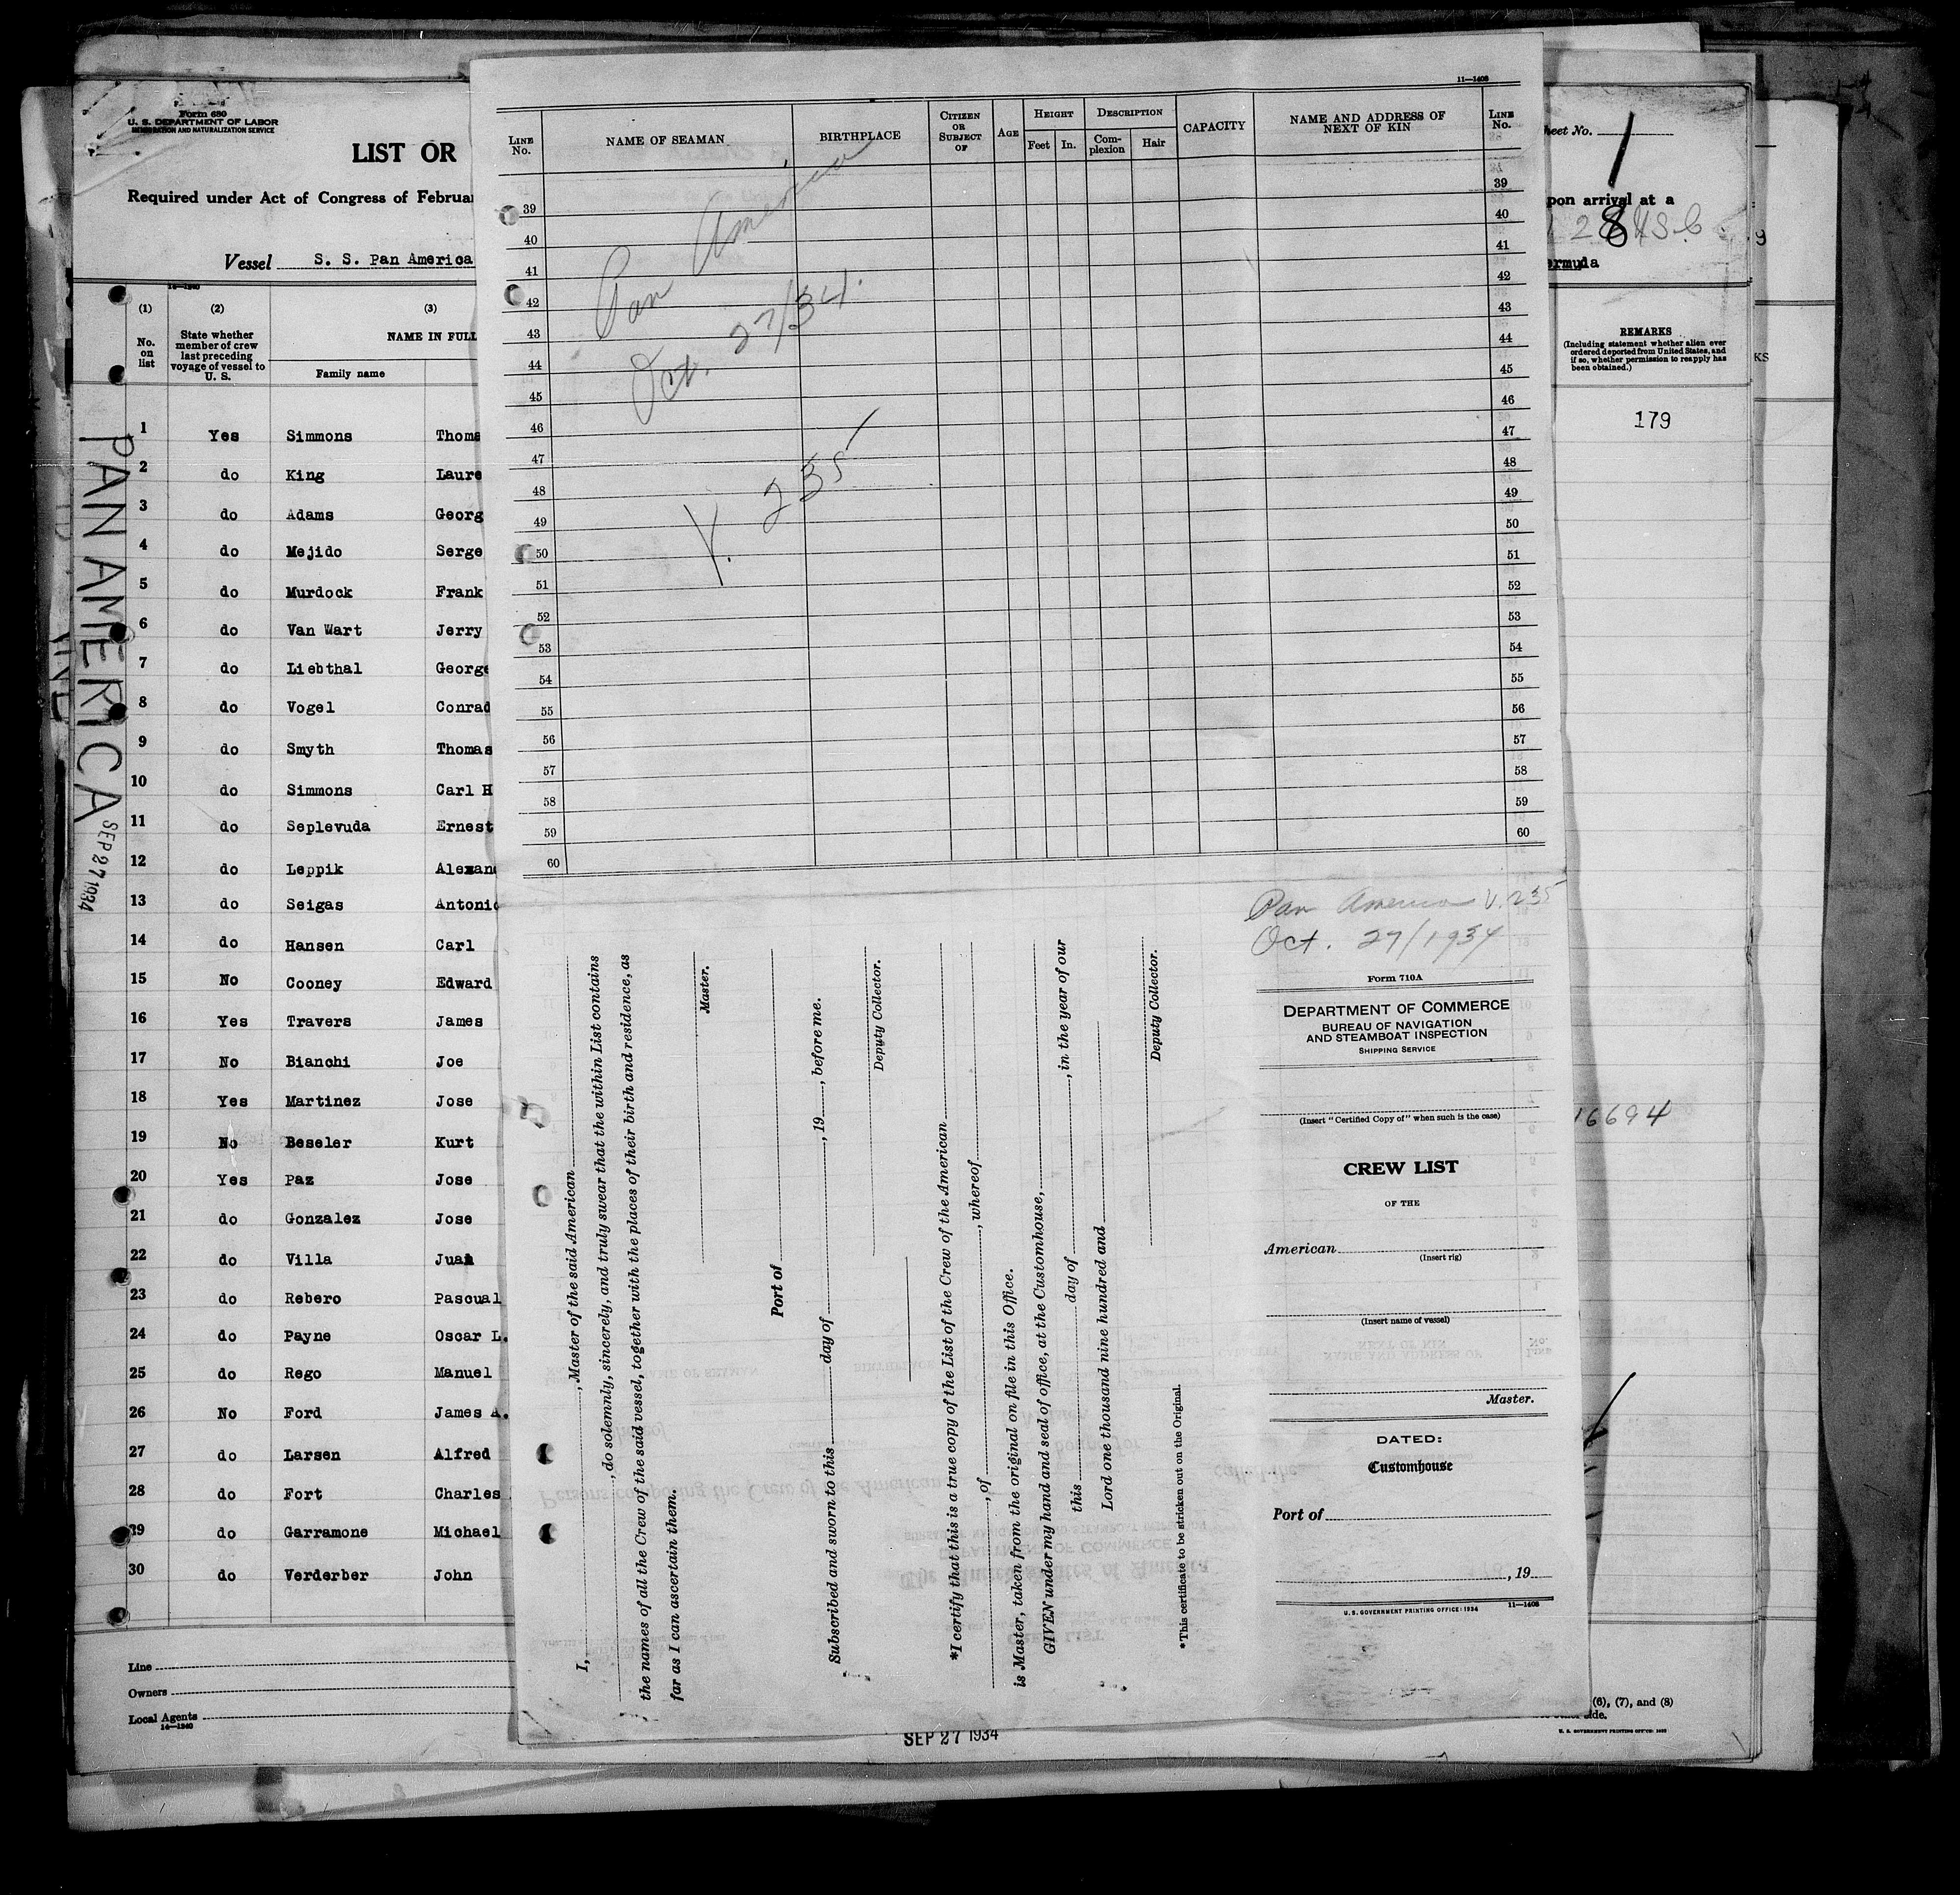 Form 680
U. S. DEPARTMENT OF LABOR
IMMIGRATION AND NATURALIZATION SERVICE
LIST OR
Required under Act of Congress of Februar
Vessel S. S. Pan America
14—1240
(1) (2) (3)
No. on list
State whether member of crew last preceding voyage of vessel to U. S.
NAME IN FULL
Family name
1 Yes Simmons Thoma
2 do King Laure
3 do Adams Georg
4 do Mejido Serge
5 do Murdock Frank
6 do Van Wart Jerry
7 do Liebthal George
8 do Vogel Conrad
9 do Smyth Thomas
10 do Simmons Carl H
11 do Seplevuda Ernest
12 do Leppik Alexand
13 do Seigas Antonio
14 do Hansen Carl
15 No Cooney Edward
16 Yes Travers James
17 No Bianchi Joe
18 Yes Martinez Jose
19 No Beseler Kurt
20 Yes Paz Jose
21 do Gonzalez Jose
22 do Villa Juan
23 do Rebero Pascual
24 do Payne Oscar L.
25 do Rego Manuel
26 No Ford James A.
27 do Larsen Alfred
28 do Fort Charles
29 do Garramone Michael
30 do Verderber John
Line
Owners
Local Agents
14—1240
PAN AMERICA
SEP 27 1934
11—1408
LINE No.
NAME OF SEAMAN
BIRTHPLACE
CITIZEN OR SUBJECT OF
AGE
HEIGHT
Feet In.
DESCRIPTION
Complexion Hair
CAPACITY
NAME AND ADDRESS OF NEXT OF KIN
LINE No.
39 39
40 40
41 41
42 42
43 43
44 44
45 45
46 46
47 47
48 48
49 49
50 50
51 51
52 52
53 53
54 54
55 55
56 56
57 57
58 58
59 59
60 60
Pan America
Oct. 27/34.
V. 235
I, , Master of the said American
, do solemnly, sincerely, and truly swear that the within List contains
the names of all the Crew of the said vessel, together with the places of their birth and residence, as
far as I can ascertain them.
Master.
Port of
Subscribed and sworn to this day of , 19 , before me.
Deputy Collector.
*I certify that this is a true copy of the List of the Crew of the American
, of , whereof
is Master, taken from the original on file in this Office.
GIVEN under my hand and seal of office, at the Customhouse,
this day of , in the year of our
Lord one thousand nine hundred and
Deputy Collector.
*This certificate to be stricken out on the Original.
Pan America V. 235
Oct. 27/1934
Form 710A
DEPARTMENT OF COMMERCE
BUREAU OF NAVIGATION
AND STEAMBOAT INSPECTION
SHIPPING SERVICE
(Insert "Certified Copy of" when such is the case)
CREW LIST
OF THE
American
(Insert rig)
(Insert name of vessel)
Master.
DATED:
Customhouse
Port of
, 19
U. S. GOVERNMENT PRINTING OFFICE: 1934 11—1408
SEP 27 1934
heet No. 1
pon arrival at a
ermuda
REMARKS
(Including statement whether alien ever ordered deported from United States, and if so, whether permission to reapply has been obtained.)
179
16694
(6), (7), and (8)